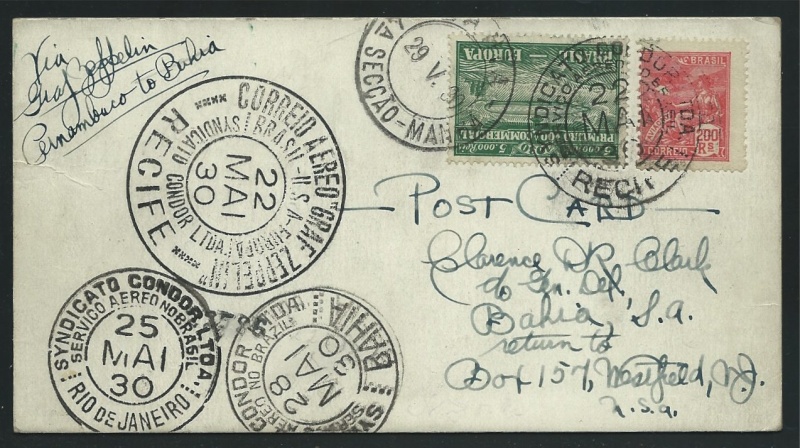 Via
Graf Zeppelin
Pernambuco to Bahia
CORREIO AEREO "GRAF ZEPPELIN"
BRASIL-U.S.A-EUROPA
SYNDICATO CONDOR LTDA.
22
MAI
30
RECIFE
LA SECCÃO-MAN
29 V. 30
BRASIL EUROPA
PRIMEIRO VÔO COMMERCIAL
5.000 RÉIS
SYNDICATO CONDOR LTDA
22
MAI
RECIF
BRASIL
CORREIO
200
RS
POST CARD
Clarence D.R. Clark
c/o Gen. Del.
Bahia, S.A.
return to
Box 157, Westfield, N.J.
U.S.A.
SYNDICATO CONDOR LTDA.
SERVIÇO AEREO NO BRASIL
25
MAI
30
RIO DE JANEIRO
SY CONDOR LTDA
SERV AEREO NO BRAZIL
28
MAI
30
BAHIA